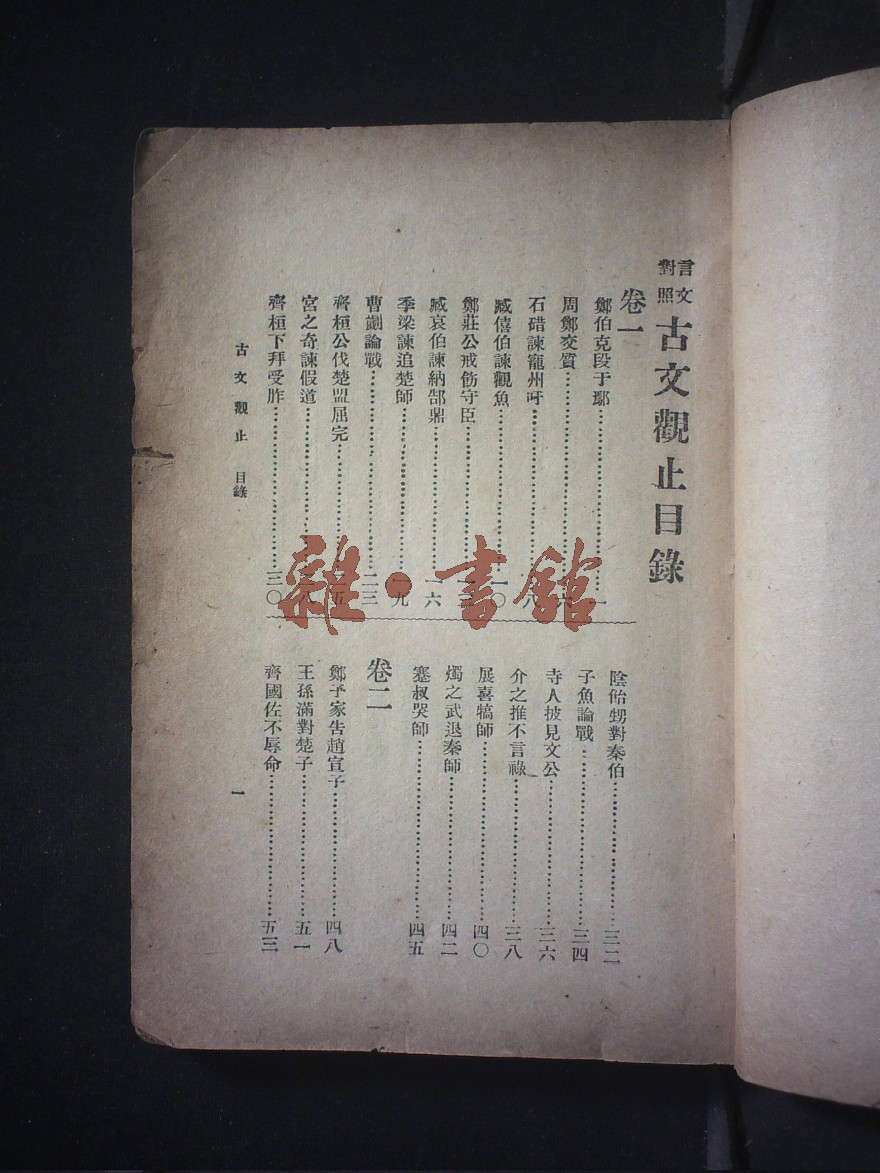 言文對照 古文觀止目錄
卷一
鄭伯克段于鄢……一
周鄭交質……六
石碏諫寵州吁……八
臧僖伯諫觀魚……一〇
鄭莊公戒飭守臣……
臧哀伯諫納郜鼎……一六
季梁諫追楚師……一九
曹劌論戰……二三
齊桓公伐楚盟屈完……二五
宮之奇諫假道……二八
齊桓下拜受胙……三〇
陰飴甥對秦伯……三二
子魚論戰……三四
寺人披見文公……三六
介之推不言祿……三八
展喜犒師……四〇
燭之武退秦師……四二
蹇叔哭師……四五
卷二
鄭子家告趙宣子……四八
王孫滿對楚子……五一
齊國佐不辱命……五三
古文觀止 目錄
一
雜·書館